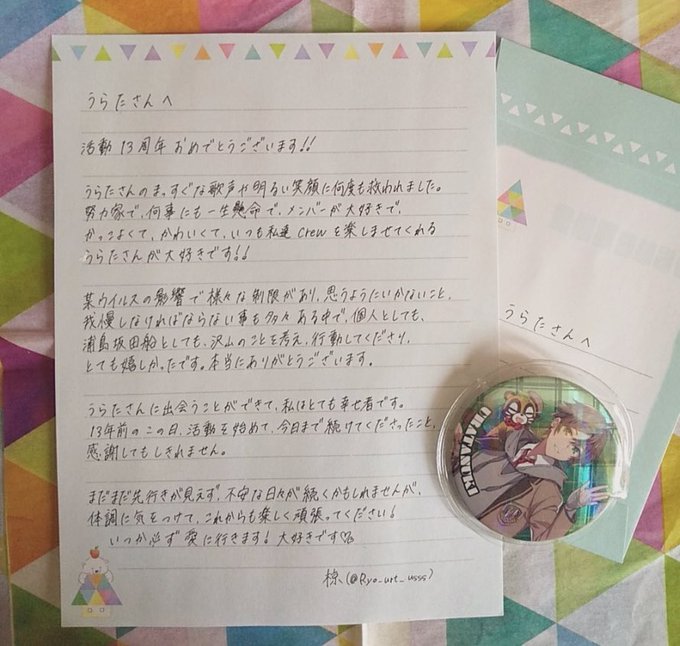 うらたさんへ
活動13周年おめでとうございます!!
うらたさんのまっすぐな歌声や明るい笑顔に何度も救われました。
努力家で、何事にも一生懸命で、メンバーが大好きで、
かっこよくて、かわいくて、いつも私達crewを楽しませてくれる
うらたさんが大好きです!!
某ウイルスの影響で様々な制限があり、思うようにいかないこと、
我慢しなければならない事も多々ある中で、個人としても、
浦島坂田船としても、沢山のことを考え、行動してくださり、
とても嬉しかったです。本当にありがとうございます。
うらたさんに出会うことができて、私はとても幸せ者です。
13年前のこの日、活動を始めて、今日まで続けてくださったこと、
感謝してもしきれません。
まだまだ先行きが見えず、不安な日々が続くかもしれませんが、
体調に気をつけて、これからも楽しく頑張ってください!
いつか必ず愛に行きます!大好きです♡
椋(@Ryo_urt_usss)
うらたさんへ
URATANUKI